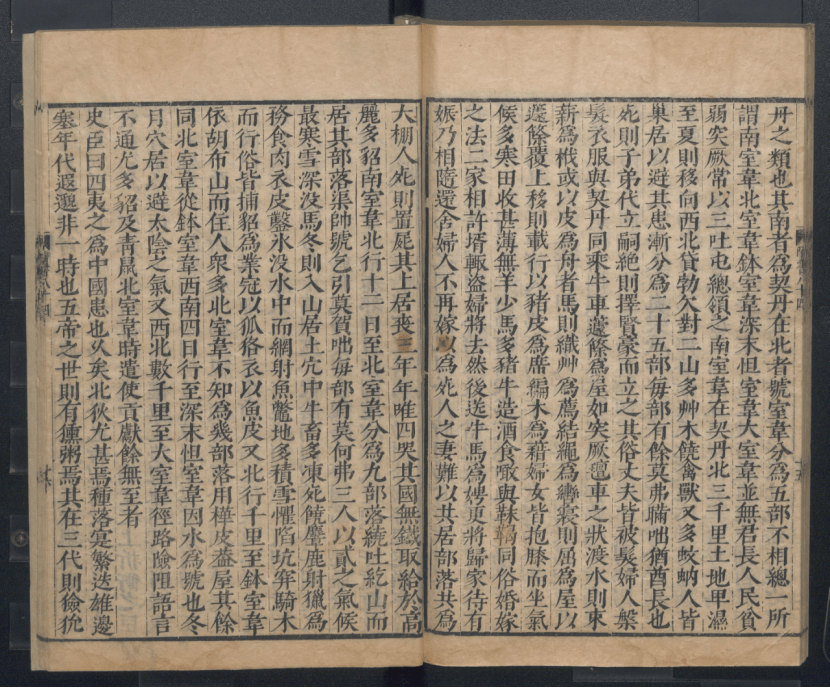 丹之類也其南者爲契丹在北者號室韋分爲五部不相總一所
謂南室韋北室韋鉢室韋深末怛室韋大室韋並無君長人民貧
弱突厥常以三吐屯總領之南室韋在契丹北三千里土地卑濕
至夏則移向西北貸勃欠對二山多艸木饒禽獸又多蚊蚋人皆
巢居以避其患漸分爲二十五部每部有餘莫弗瞞咄猶酋長也
死則子弟代立嗣絶則擇賢豪而立之其俗丈夫皆被髮婦人槃
髮衣服與契丹同乘牛車蘧篨爲屋如突厥氊車之狀渡水則束
薪爲栰或以皮爲舟者馬則織艸爲薦結繩爲轡寢則屈爲屋以
蘧篨覆上移則載行以豬皮爲席編木爲藉婦女皆抱膝而坐氣
候多寒田收甚薄無羊少馬多豬牛造酒食噉與靺鞨同俗婚嫁
之法二家相許壻輒盜婦將去然後送牛馬爲娉更將歸家待有
娠乃相隨還舍婦人不再嫁以爲死人之妻難以共居部落共爲
大棚人死則置屍其上居喪三年年唯四哭其國無鐵取給於高
麗多貂南室韋北行十一日至北室韋分爲九部落繞吐紇山而
居其部落渠帥號乞引莫賀咄每部有莫何弗三人以貳之氣候
最寒雪深没馬冬則入山居土穴中牛畜多凍死饒麞鹿射獵爲
務食肉衣皮鑿氷没水中而網射魚鼈地多積雪懼陷坑穽騎木
而行俗皆捕貂爲業冠以狐狢衣以魚皮又北行千里至鉢室韋
依胡布山而住人衆多北室韋不知爲幾部落用樺皮葢屋其餘
同北室韋從鉢室韋西南四日行至深末怛室韋因水爲號也冬
月穴居以避太陰之氣又西北數千里至大室韋徑路險阻語言
不通尤多貂及青鼠北室韋時遣使貢獻餘無至者
史臣曰四夷之爲中國患也久矣北狄尤甚焉種落寔繁迭雄邊
塞年代遐邈非一時也五帝之世則有獯粥焉其在三代則獫狁